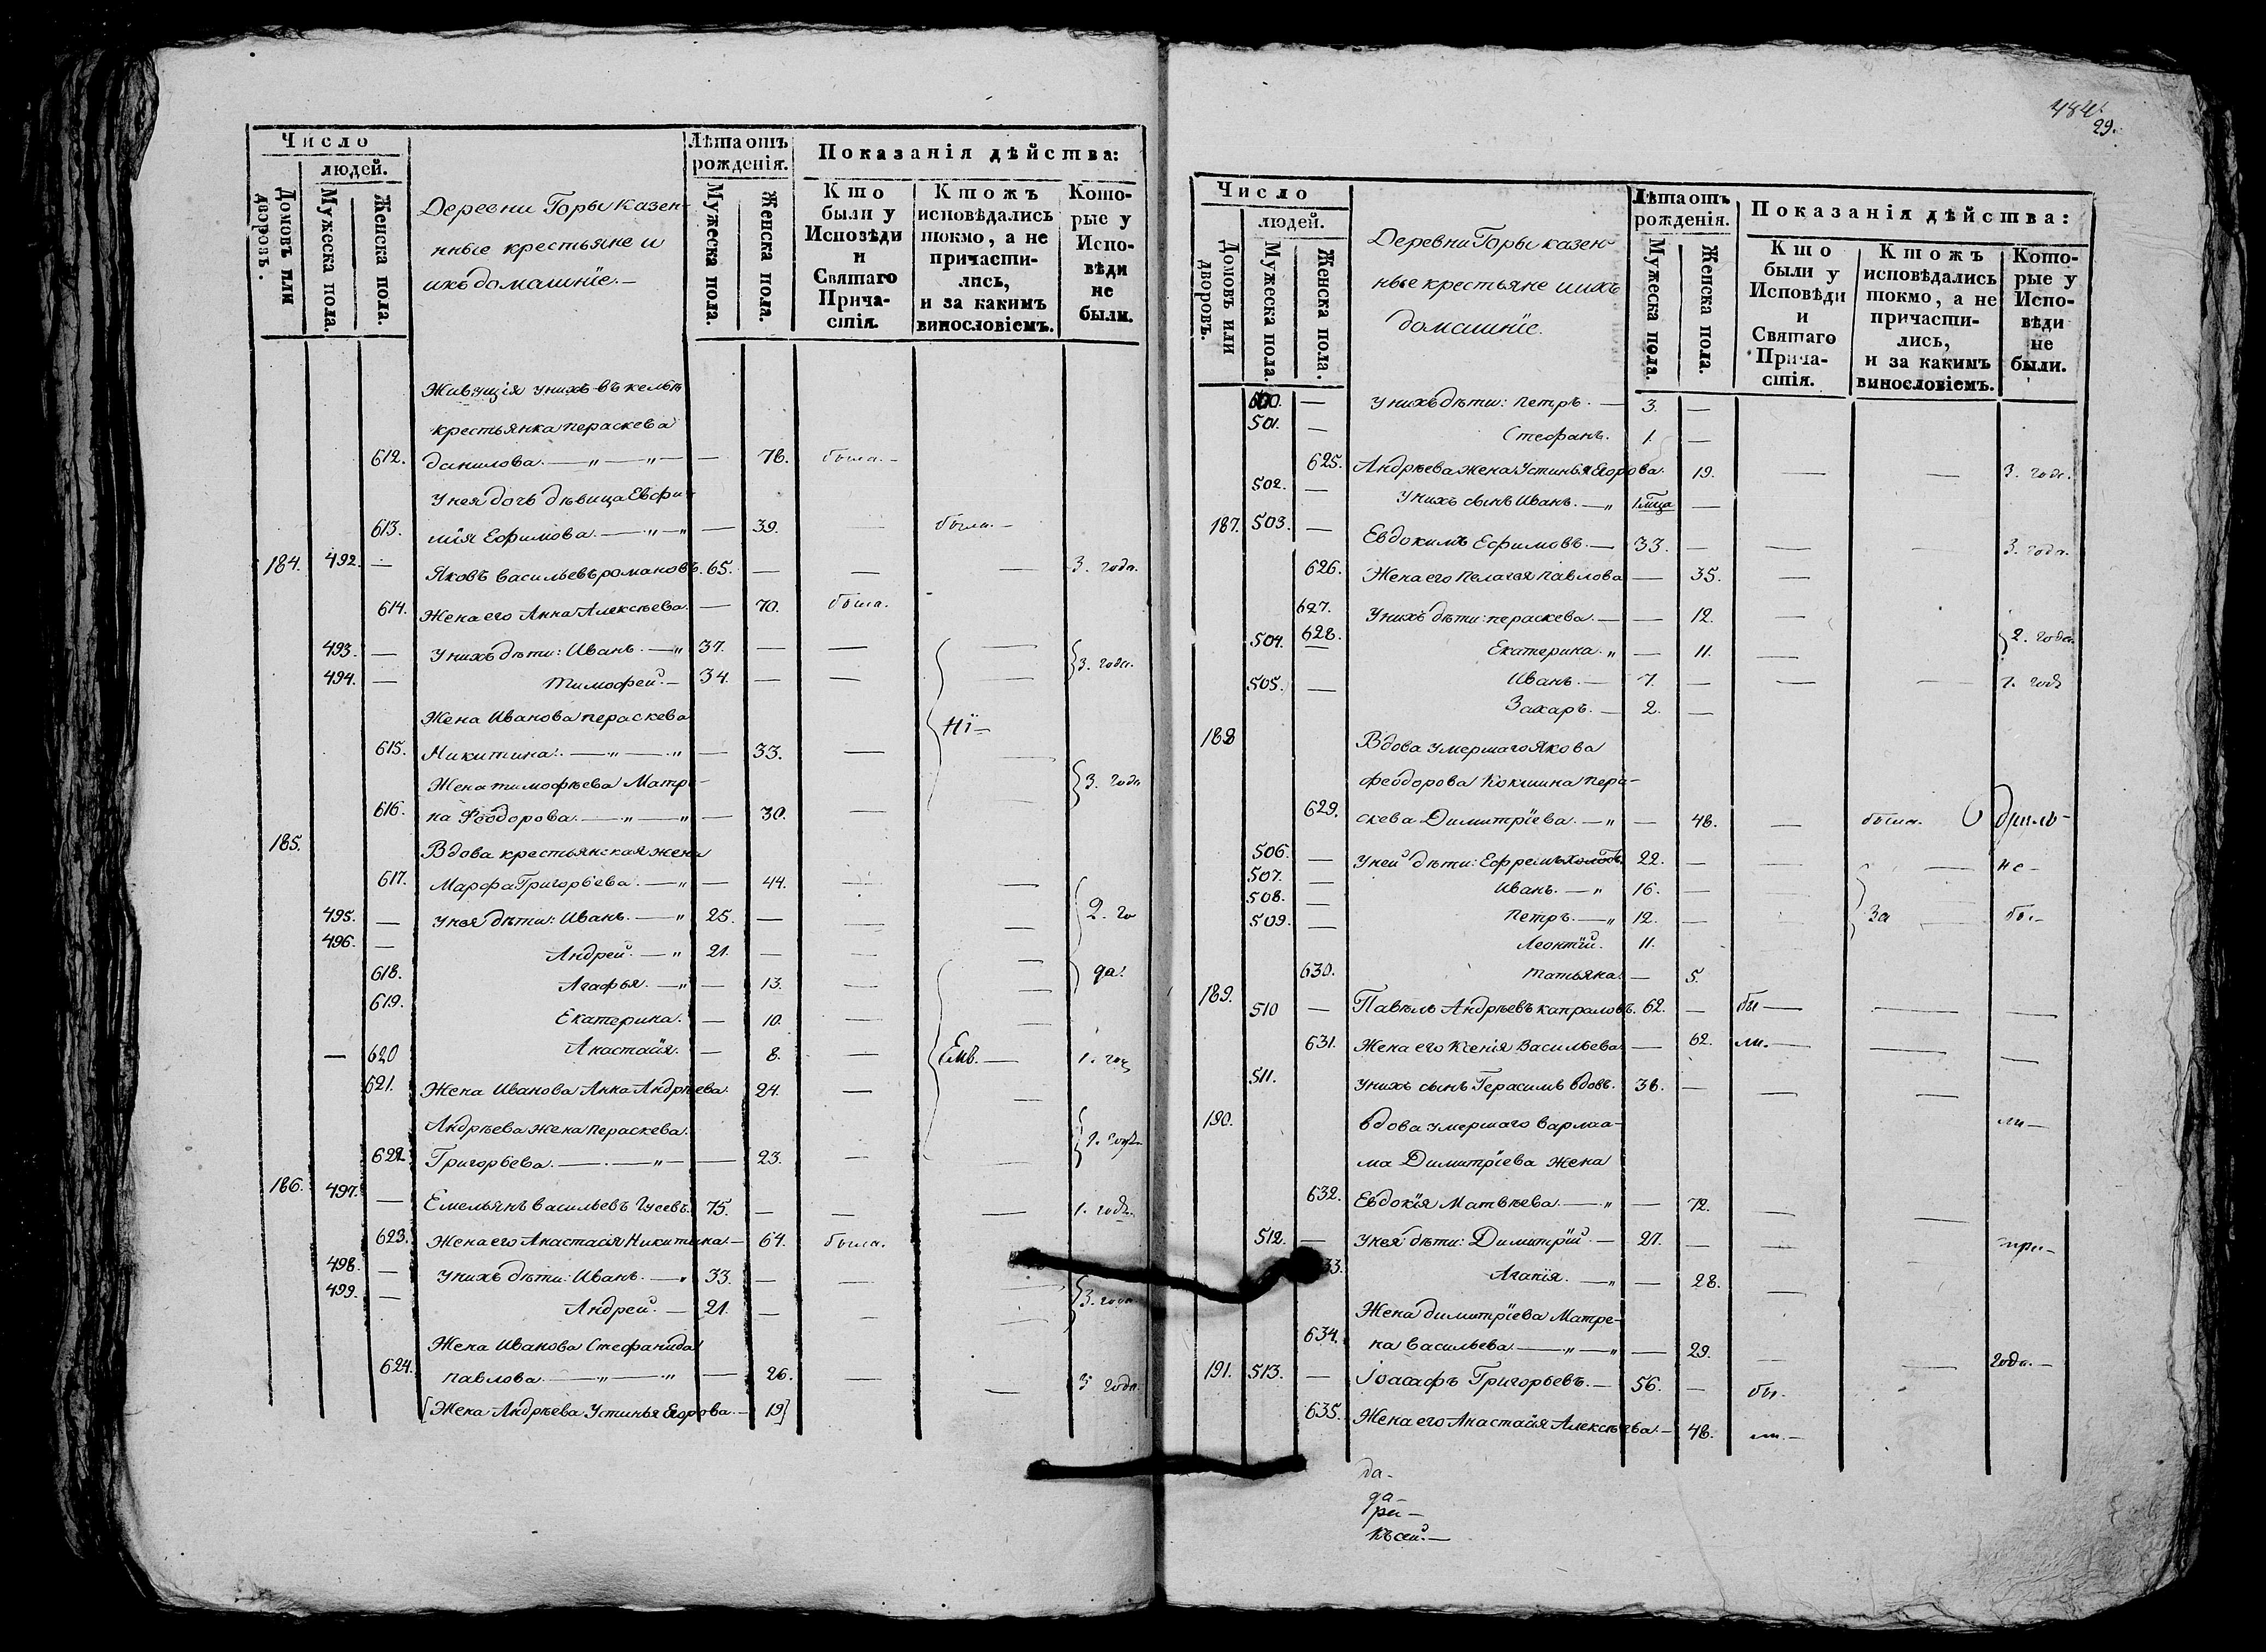 Число
людей.
Домовъ или дворовъ.
Мужеска пола.
Женска пола.
Деревни Горы казен-
ные крестьяне и
ихъ домашнїе.
Лѣта отъ
рожденія.
Мужеска пола.
Женска пола.
Показанія дѣйства:
Кто
были у
Исповѣди
и
Святаго
Прича-
стія.
Ктожъ
исповѣдались
токмо, а не
причасти-
лись,
и за какимъ
винословіемъ.
Кото-
рые у
Испо-
вѣди
не
были.
Живущія у нихъ въ кельѣ
крестьянка пераскева
612. данилова. — " — " — — 76. была. —
У нея дочь дѣвица Евфи-
613. мїя Ефимова. — " — " — 39. — была. —
184. 492. — Яковъ васильевъ романовъ. 65. — — — 3. года.
614. Жена его Анна Алексѣева. — 70. была.
493. — У нихъ дѣти: Иванъ. — " 37. — — — 3. года.
494. — Тимофей. — 34. — — —
Жена Иванова пераскева
615. Никитина. — " — " — 33. — Нї —
Жена тимофѣева Матре-
616. на Феодорова. — " — " — 30. — — 3. года
185. Вдова крестьянская жена
617. Марфа Григорьева. — " — 44. — —
495. — У нея дѣти: Иванъ. — " 25. — — — 2. го
496. — Андрей. — " 21. — — —
618. Агафья. — " — 13. — — да.
619. Екатерина. — 10. — —
— 620 Анастасїя. — 8. — Ещ. — 1. год
621. Жена Иванова Анна Андрѣева. 24. — —
Андрѣева жена пераскева.
622. Григорьева. — . — " — — 23. — — 1. годъ
186. 497. — Емельянъ васильевъ Гусевъ. 75. — — — 1. годъ.
623. Жена его Анастасїя Никитина. — 64. была.
498. — У нихъ дѣти: Иванъ. — " 33. — — —
499. — Андрей. — 21. — — 3. года
Жена Иванова Стефанида
624. павлова. — " — " — 26. — — 3 года.
[Жена Андрѣева Устинья Егорова. — 19]
484.
29.
Число
людей.
Домовъ или дворовъ.
Мужеска пола.
Женска пола.
Деревни Горы казен-
ные крестьяне и ихъ
домашнїе.
Лѣта отъ
рожденія.
Мужеска пола.
Женска пола.
Показанія дѣйства:
Кто
были у
Исповѣди
и
Святаго
Прича-
стія.
Ктожъ
исповѣдались
токмо, а не
причасти-
лись,
и за какимъ
винословіемъ.
Кото-
рые у
Испо-
вѣди
не
были.
500. — У нихъ дѣти: Петръ. — 3. —
501. — Стефанъ. 1. —
625. Андрѣева жена Устинья Егорова. 19. — — 3. года.
502. — У нихъ сынъ Иванъ. — " —
187. 503. — Евдокимъ Ефимовъ. — 33. — — — 3. года.
626. Жена его Пелагея павлова — 35. —
627. У нихъ дѣти: пераскева. — — 12. —
504. 628. — Екатерина. " — 11. — 2. года.
505. — Иванъ. — 7. — — — 1. годъ
Захаръ. — 2. —
188 Вдова умершаго Якова
феодорова Кокшина пера-
629. скева Димитрїева. — " — 48. — была. Одрях-
506. — У ней дѣти: Ефремъ холостъ. 22. — — — не —
507. — Иванъ. — " 16. — —
508. — Петръ. — " 12. — — За бо. —
509. — Леонтїй. 11.
630. Татьяна. — 5.
189. 510 — Павелъ Андрѣевъ капраловъ. 62. — бы — — —
631. Жена его Ксенїя Васильева. — 62. ли. — — —
511. У нихъ сынъ Герасимъ вдовъ. 38. — — —
190. вдова умершаго варлаа- ли —
ма Димитрїева жена
632. Евдокїя Матвѣева. — " — 72. — —
512. — У нея дѣти: Димитрїй. — 27. — — при —
33. Агапїя. — " — 28. —
Жена димитрїева Матре-
634. на васильева. — " — " — 29. — — года. —
191. 513. — Іоасафъ Григорьевъ. — 56. — бы.
635. Жена его Анастасїя Алексѣева. — 48. ли. —
да —
да —
ри —
къ сей. —